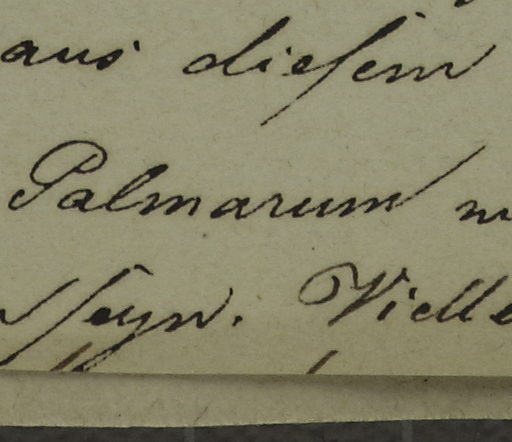 aus diesem
Palmarum
seyn. Vielle